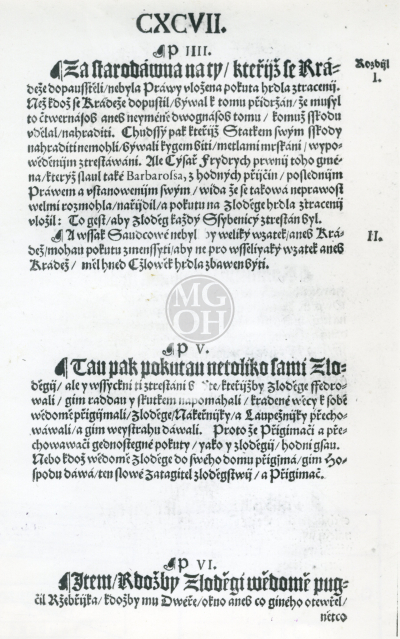 CXCVII.
P IIII.
Za starodáwna na ty/ kteřijž se Krá-
Rozdijl
deže dopausstěli/ nebyla Práwy wložena pokuta hrdla ztracenij.
I.
Než kdož se Krádeže dopustil/ býwal k tomu přidržán/ že musyl
to čtwernásob aneb neyméně dwognásob tomu/ komuž sskodu
vdělal/ nahraditi. Chudssý pak kteřijž Statkem swým sskody
nahraditi nemohli/ býwali kygem biti/ metlami mrskáni/ wypo-
wěděnijm ztrestáwáni. Ale Cýsař Frydrych prwnij toho gmé-
na/ kterýž slaul také Barbarossa, z hodných přijčin/ poslednijm
Práwem a vstanowenijm swým/ wida že se takowá neprawost
welmi rozmohla/ nařijdil/ a pokutu na Zloděge hrdla ztracenij
wložil: To gest/ aby Zloděg každý Ssybenicý ztrestán byl.
A wssak Saudcowé nebyl by weliký wzatek/ aneb Krá-
II.
dež/ mohau pokutu zmenssyti/ aby ne pro wsselijaký wzatek aneb
Kradež/ měl hned Cžlowěk hrdla zbawen býti.
MG
OH
P V.
Tau pak pokutau netoliko sami Zlo-
děgij/ ale y wssyckni ti ztrestáni kteřijžby Zloděge ffedro-
wali/ gim raddau y skutkem napomáhali/ kradené wěcy k sobě
wědomě přigijmali/ Zloděge/ Nákeřnijky/ a Laupežnijky přecho-
wáwali/ a gim weystrahu dáwali. Proto že Přigimači a pře-
chowáwači gednostegné pokuty/ yako y zloděgij/ hodni gsau.
Nebo kdož wědomě Zloděge do swého domu přigijmá/ gim Ho-
spodu dáwá/ ten slowe Zatagitel zloděgstwij/ a Přigimač.
P VI.
Item/ Kdožby Zloděgi wědomě pug-
čil Ržebřijka/ kdožby mu Dwéře/ okno aneb co giného otewřel/
nětco